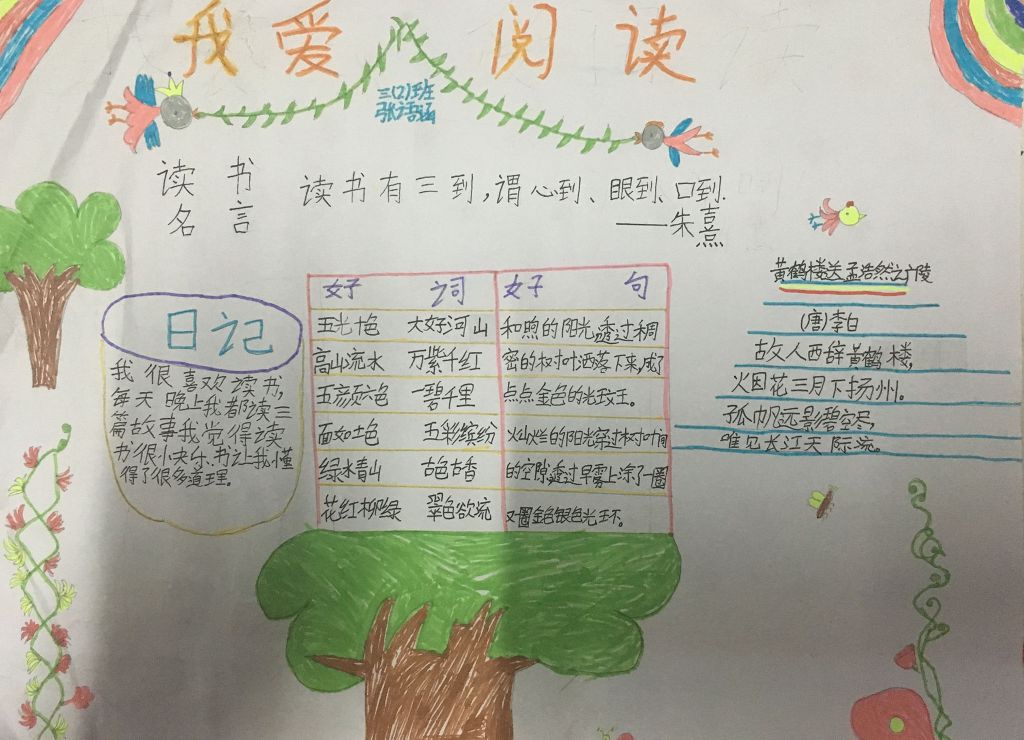 我爱阅读
三(2)班
张语涵
读书
名言
读书有三到,谓心到、眼到、口到.
——朱熹
日记
我很喜欢读书,
每天晚上我都读三
篇故事我觉得读
书很快乐、书让我懂
得了很多道理。
好词 好句
五光十色 大好河山
高山流水 万紫千红
五颜六色 一碧千里
面如土色 五彩缤纷
绿水青山 古色古香
花红柳绿 翠色欲流
和煦的阳光透过稠
密的树叶洒落下来,成了
点点金色的光玟王。
火灿烂的阳光穿过树叶间
的空隙,透过早雾上涂了一圈
又圈金色银色光环。
黄鹤楼送孟浩然之广陵
(唐)李白
故人西辞黄鹤楼,
烟花三月下扬州。
孤帆远影碧空尽,
唯见长江天际流。